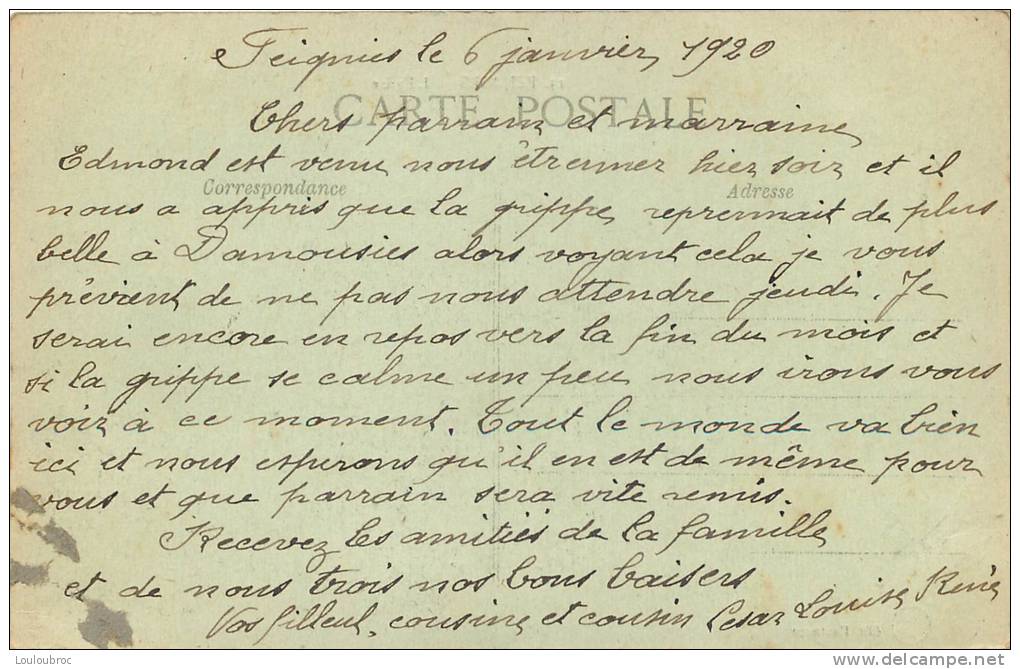 Feignies le 6 janvier 1920
CARTE POSTALE
Chers parrain et marraine
Edmond est venu nous étrenner hier soir et il
Correspondance
Adresse
nous a appris que la grippe reprennait de plus
belle à Damousies alors voyant cela je vous
prévient de ne pas nous attendre jeudi. Je
serai encore en repos vers la fin du mois et
si la grippe se calme un peu nous irons vous
voir à ce moment. Tout le monde va bien
ici et nous espérons qu'il en est de même pour
vous et que parrain sera vite remis.
Recevez les amitiés de la famille
et de nous trois nos bons baisers
Vos filleul, cousine et cousin César Louise René
Louloubroc
www.delcampe.net